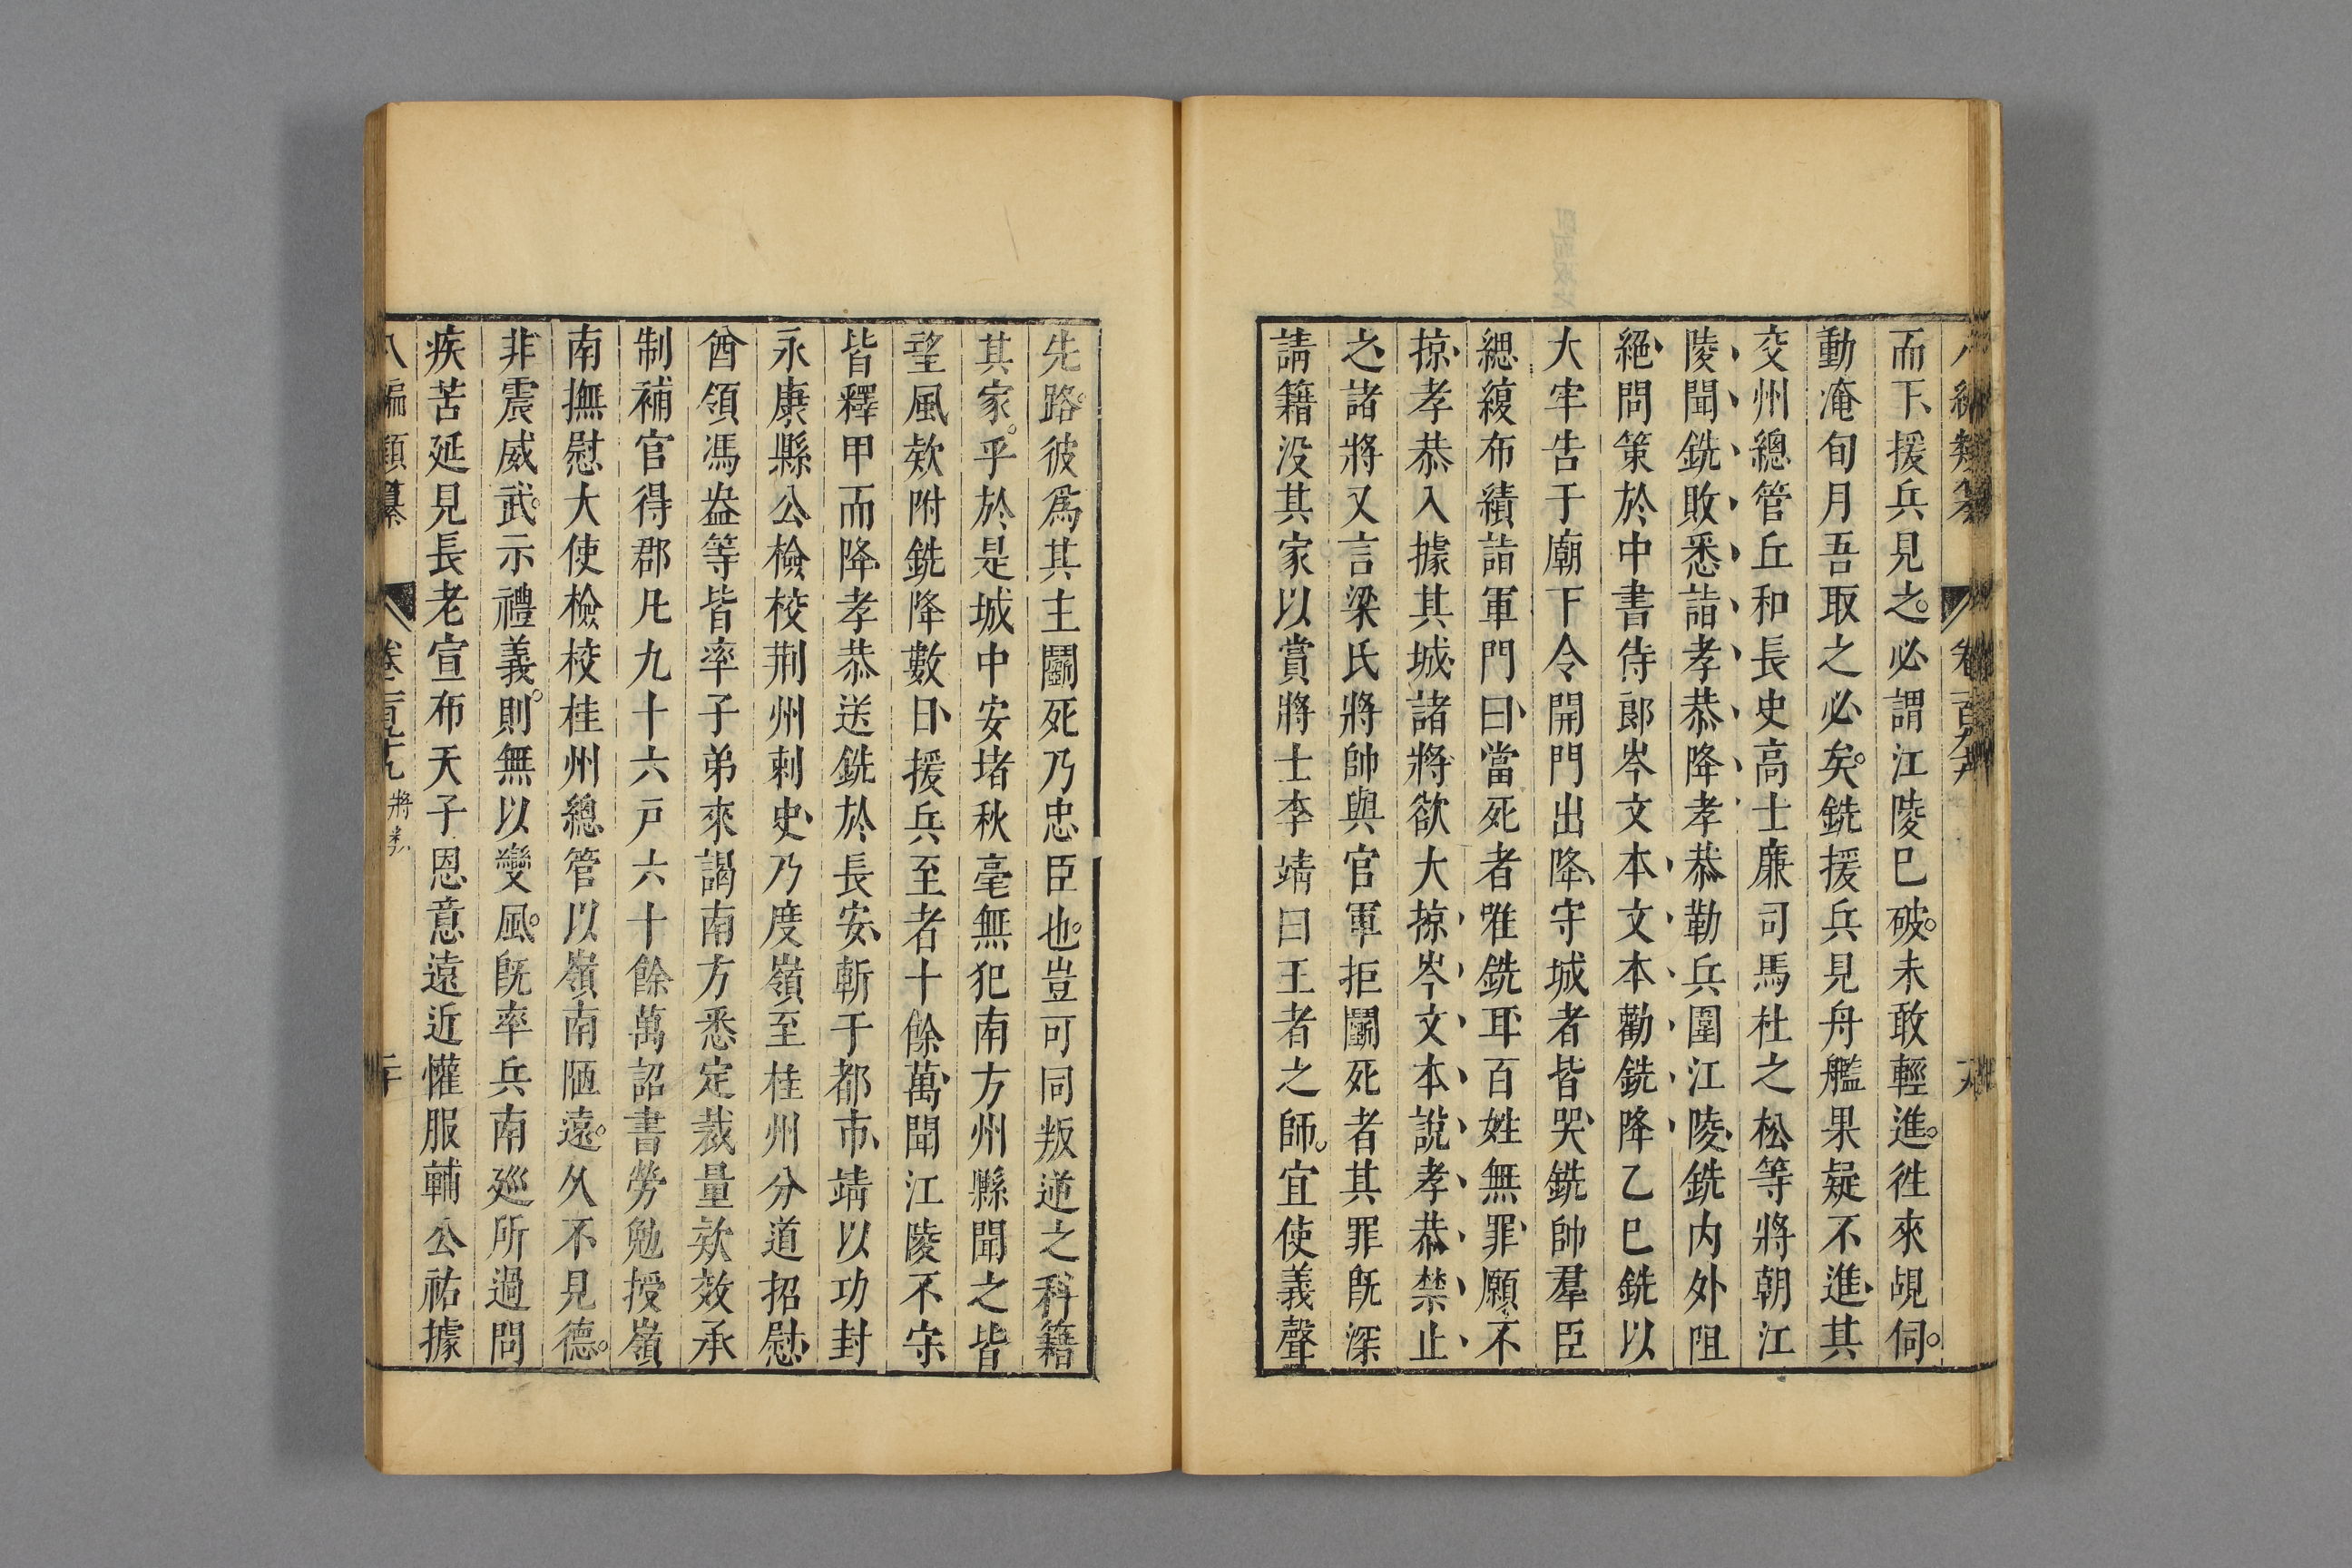 而下援兵見之必謂江陵已破未敢輕進徃來覘伺
動淹旬月吾取之必矣銑援兵見舟艦果疑不進其
交州總管丘和長史高士廉司馬杜之松等將朝江
陵聞銑敗悉詣孝恭降孝恭勒兵圍江陵銑内外阻
絕問策於中書侍郎岑文本文本勸銑降乙巳銑以
大牢告于廟下令開門出降守城者皆哭銑帥羣臣
緦縗布幘詣軍門曰當死者唯銑耳百姓無罪願不
掠孝恭入據其城諸將欲大掠岑文本說孝恭禁止
之諸將又言梁氏將帥與官軍拒鬭死者其罪旣深
請籍没其家以賞將士李靖曰王者之師宜使義聲
先路彼爲其主鬭死乃忠臣也豈可同叛逆之科籍
其家乎於是城中安堵秋毫無犯南方州縣聞之皆
望風欵附銑降數日援兵至者十餘萬聞江陵不守
皆釋甲而降孝恭送銑於長安斬于都市靖以功封
永康縣公檢校荆州刺史乃度嶺至桂州分道招慰
酋領馮盎等皆率子弟來謁南方悉定裁量欵效承
制補官得郡凡九十六戸六十餘萬詔書勞勉授嶺
南撫慰大使檢校桂州總管以嶺南陋遠久不見德
非震威武示禮義則無以變風旣率兵南廵所過問
疾苦延見長老宣布天子恩意遠近懽服輔公祏據
八編類纂 卷 將